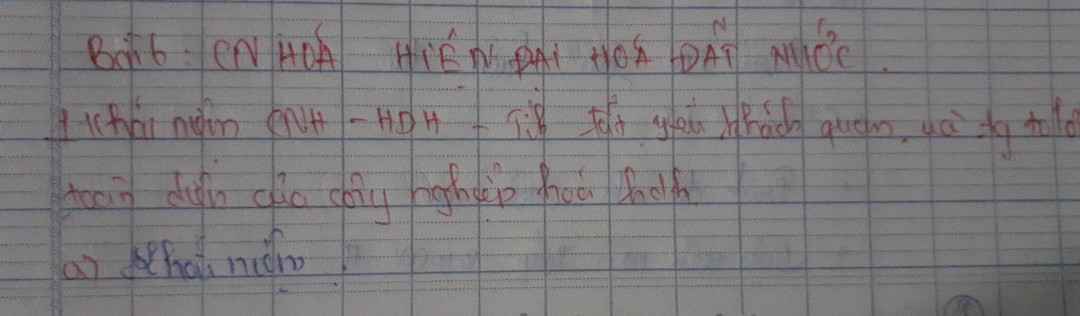 Bài 6: CN HOÁ HIỆN ĐẠI HOÁ ĐẤT NƯỚC.
1 Khái niệm CNH - HDH - Tính tất yếu khách quan và td to lớ
toàn diện của công nghiệp hoá hdh
a) Khái niệm.